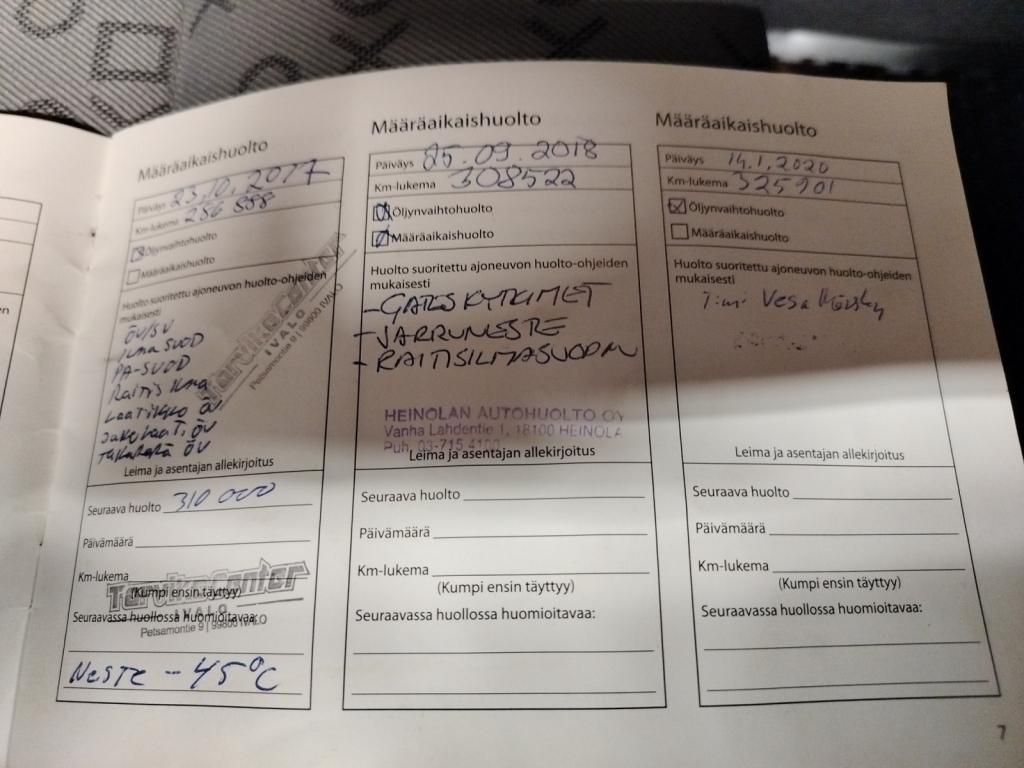 Määräaikaishuolto
Päiväys 23.10.2017
Km-lukema 286 888
Öljynvaihtohuolto
Määräaikaishuolto
Huolto suoritettu ajoneuvon huolto-ohjeiden
mukaisesti
ÖV/SV
ILMA SUOD
PA-SUOD
Raitis Ilma
Laatikko ÖV
Jakolaati. ÖV
Takaperä ÖV
TarvikeCenter
IVALO
Petsamontie 9 | 99800 IVALO
Leima ja asentajan allekirjoitus
Seuraava huolto 310 000
Päivämäärä
Km-lukema
(Kumpi ensin täyttyy)
TarvikeCenter
IVALO
Petsamontie 9 | 99800 IVALO
Seuraavassa huollossa huomioitavaa:
Neste -45°C
Määräaikaishuolto
Päiväys 25.09.2018
Km-lukema 308522
Öljynvaihtohuolto
Määräaikaishuolto
Huolto suoritettu ajoneuvon huolto-ohjeiden
mukaisesti
-JARRUNESTE
-RAITISILMASUODIN
HEINOLAN AUTOHUOLTO OY
Vanha Lahdentie 1, 18100 HEINOLA
Puh. 03-715 4100
Leima ja asentajan allekirjoitus
Seuraava huolto
Päivämäärä
Km-lukema
(Kumpi ensin täyttyy)
Seuraavassa huollossa huomioitavaa:
Määräaikaishuolto
Päiväys 14.1.2020
Km-lukema 325901
Öljynvaihtohuolto
Määräaikaishuolto
Huolto suoritettu ajoneuvon huolto-ohjeiden
mukaisesti
Leima ja asentajan allekirjoitus
Seuraava huolto
Päivämäärä
Km-lukema
(Kumpi ensin täyttyy)
Seuraavassa huollossa huomioitavaa:
7